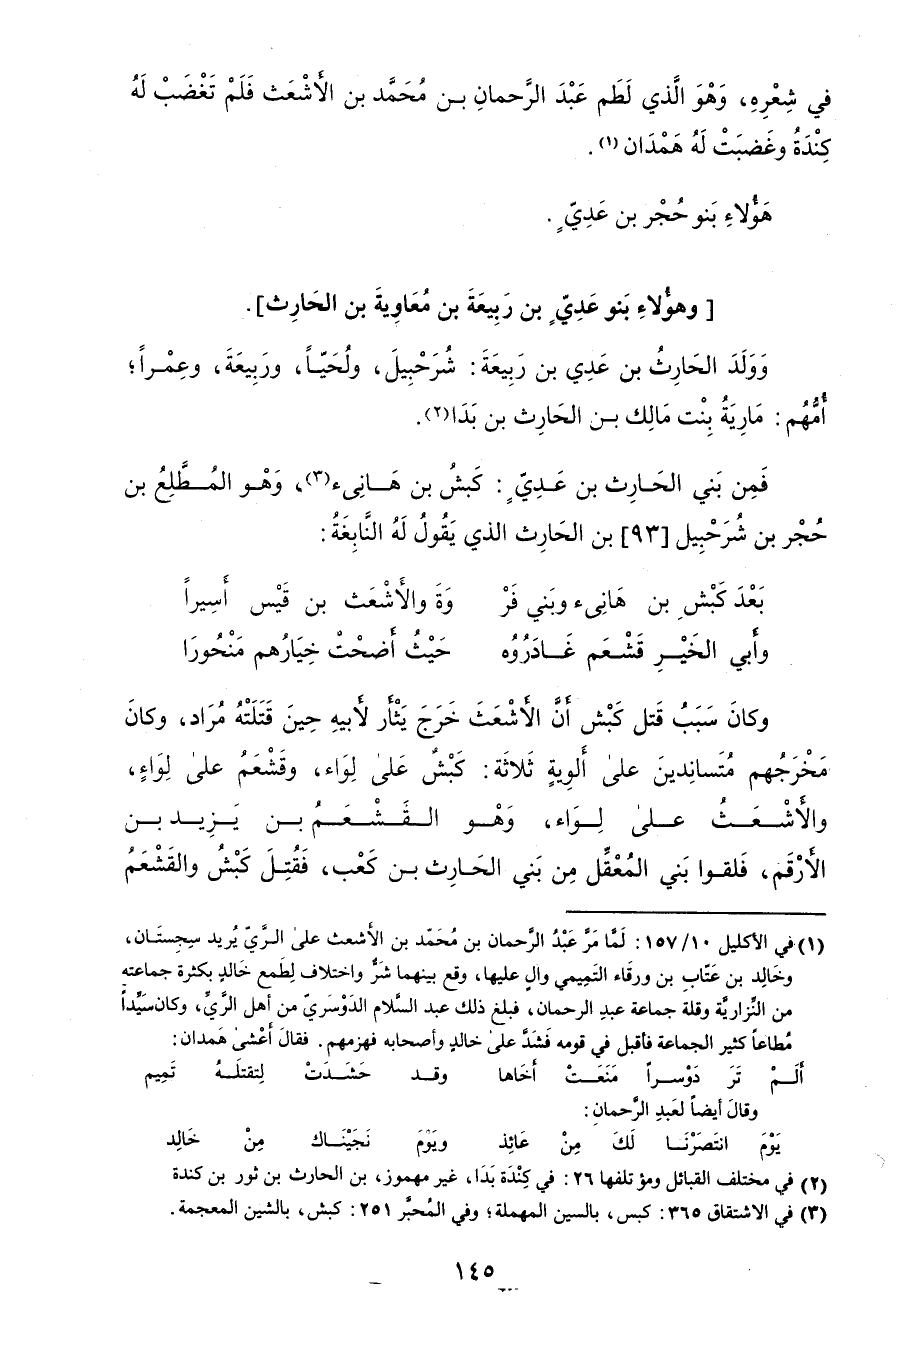 في شِعْرِهِ، وَهْوَ الَّذي لَطَم عَبْدَ الرَّحمانِ بـن مُحَمَّد بن الأَشْعَث فَلَمْ تَغْضَبْ لَهُ
كِنْدَةُ وغَضبَتْ لَهُ هَمْدَان (١).
هَؤُلاءِ بَنو حُجْر بن عَدِيّ.
[ وهؤُلاءِ بَنو عَدِيّ بن رَبِيعَةَ بن مُعَاوِيةَ بن الحَارِث].
وَوَلَدَ الحَارِثُ بن عَدِي بن رَبِيعَةَ: شُرَحْبِيلَ، ولُحَيّاً، ورَبِيعَةَ، وعِمْراً؛
أُمُّهُم: مَارِيَةُ بِنْت مَالِك بـن الحَارِث بن بَدَا(٢).
فَمِن بَني الحَارِث بن عَدِيّ: كَبشُ بن هَانِىء(٣)، وَهْو المُطَّلِعُ بن
حُجْر بن شُرَحْبِيل [٩٣] بن الحَارِث الذي يَقُولُ لَهُ النَّابِغَةُ:
بَعْدَ كَبْشِ بن هَانِىء وبَني فَرْ وَةَ والأَشْعَث بن قَيْس أَسِيراً
وأَبي الخَيْرِ قَشْعَم غَادَرُوُه حَيْثُ أَضحْتْ خِيَارُهم مَنْحُورَا
وكانَ سَبَبُ قَتل كَبْش أَنَّ الأَشْعَثَ خَرَجَ يَثْأَر لأَبيهِ حِينَ قَتَلَتْهُ مُرَاد، وكانَ
مَخْرَجُهم مُتَسانِدينَ على أَلويةٍ ثَلاثَة: كَبْشٌ عَلى لِوَاء، وقَشْعَمُ على لِوَاءٍ،
والأَشْعَثُ على لِوَاء، وَهْو القَشْعَمُ بن يَزيد بن
الأَرْقَم، فَلقوا بَني المُعْقَّل مِن بَني الحَارِث بـن كَعْب، فَقُتِلَ كَبْشُ والقَشْعَمُ
(١) في الأكليل ١٥٧/١٠: لَمَّا مَرَّ عَبْدُ الرَّحمان بن مُحَمّد بن الأشعث على الرَيّ يُريد سِجِستَان،
وخَالِد بن عَتّاب بن ورقَاء التَميمي والٍ عليها، وقع بينهما شرٌّ واختلاف لِطَمع خَالدٍ بكثرة جماعته
من النِّزاريَّة وقلة جماعة عبدِ الرحمان، فبلغ ذلك عبد السَّلام الدَوْسَري من أهل الرَّيِّ، وكان سَيِّداً
مُطاعاً كثير الجماعة فأقبل في قومه فشَدَّ على خالدٍ وأصحابه فهزمهم. فقالَ أعْشىٰ هَمدان:
أَلَمْ تَرَ دَوْسراً مَنَعَتْ أخَاها وقد حَشَدَتْ لِتقتلَهُ تَمِيم
وقالَ أيضاً لعَبدِ الرَّحمان:
يَوْمَ انتَصَرْنَا لَكَ مِنْ عَائِذ ويَوْمَ نَجَيْنَاك مِنْ خَالِد
(٢) في مختلف القبائل ومؤتلفها ٢٦: في كِنْدَة بَدَا، غير مهموز، بن الحَارث بن ثور بن كندة
(٣) في الاشتقاق ٣٦٥: كبس، بالسين المهملة؛ وفي المُحبَّر ٢٥١: كبش، بالشين المعجمة.
١٤٥